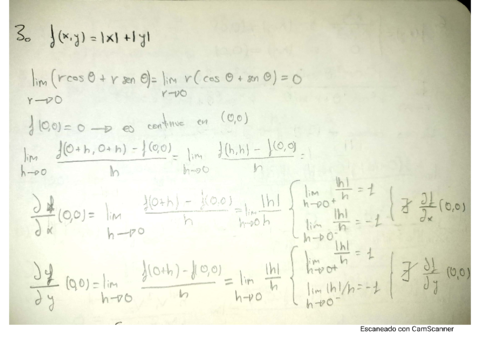 3. f(x,y) = |x|+|y|
lim r→0 (r cos θ + r sen θ) = lim r→0 r (cos θ + sen θ) = 0
f(0,0) = 0 → es continua en (0,0)
lim h→0 f(0+h, 0+h) - f(0,0) / h = lim h→0 f(h,h) - f(0,0) / h =
∂f/∂x (0,0) = lim h→0 f(0+h) - f(0,0) / h = lim h→0 |h|/h { lim h→0+ |h|/h = 1 lim h→0- |h|/h = -1 } ∄ ∂f/∂x (0,0)
∂f/∂y (0,0) = lim h→0 f(0+h) - f(0,0) / h = lim h→0 |h|/h { lim h→0+ |h|/h = 1 lim h→0- |h|/h = -1 } ∄ ∂f/∂y (0,0)
Escaneado con CamScanner